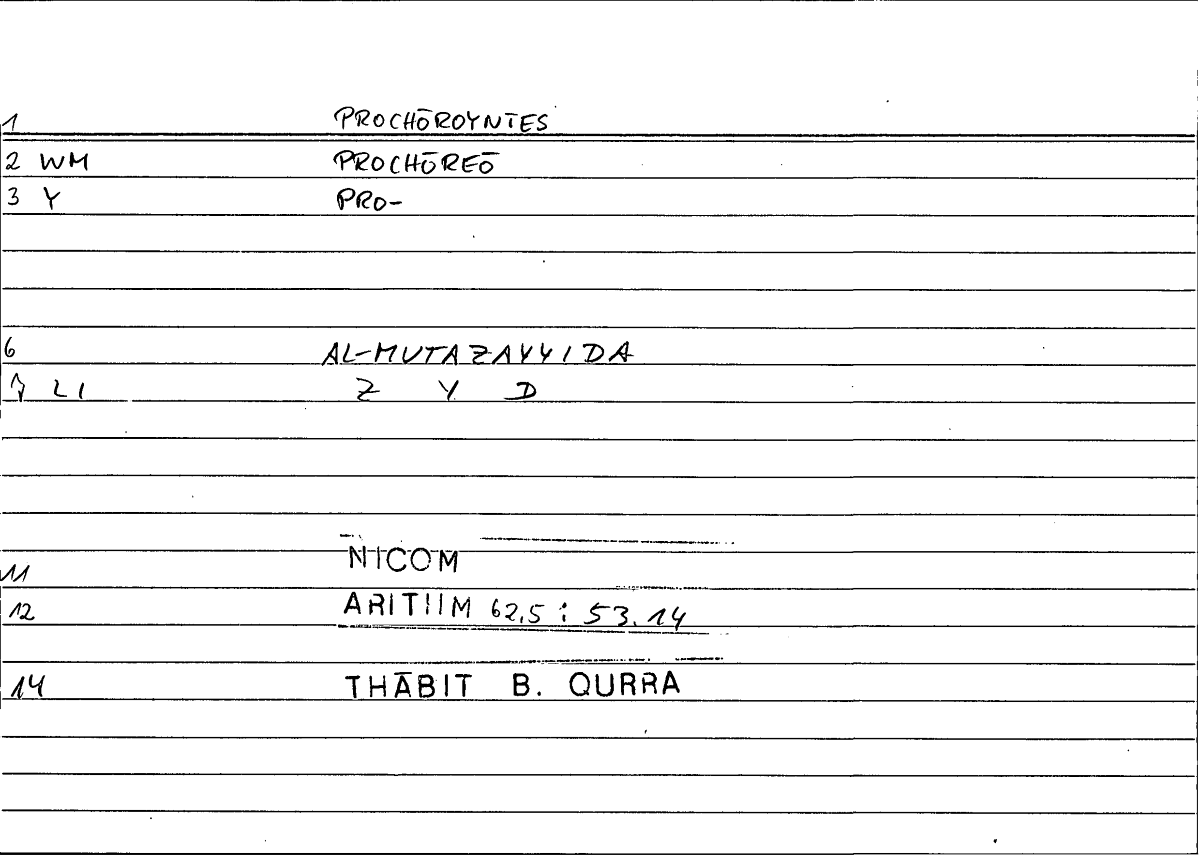 1 PROCHŌROYNTES
2 WM PROCHŌREŌ
3 Y PRO-
6 AL-MUTAZAYYIDA
7 LI Z Y D
11 NICOM
12 ARITIIM 62,5 : 53.14
14 THĀBIT B. QURRA